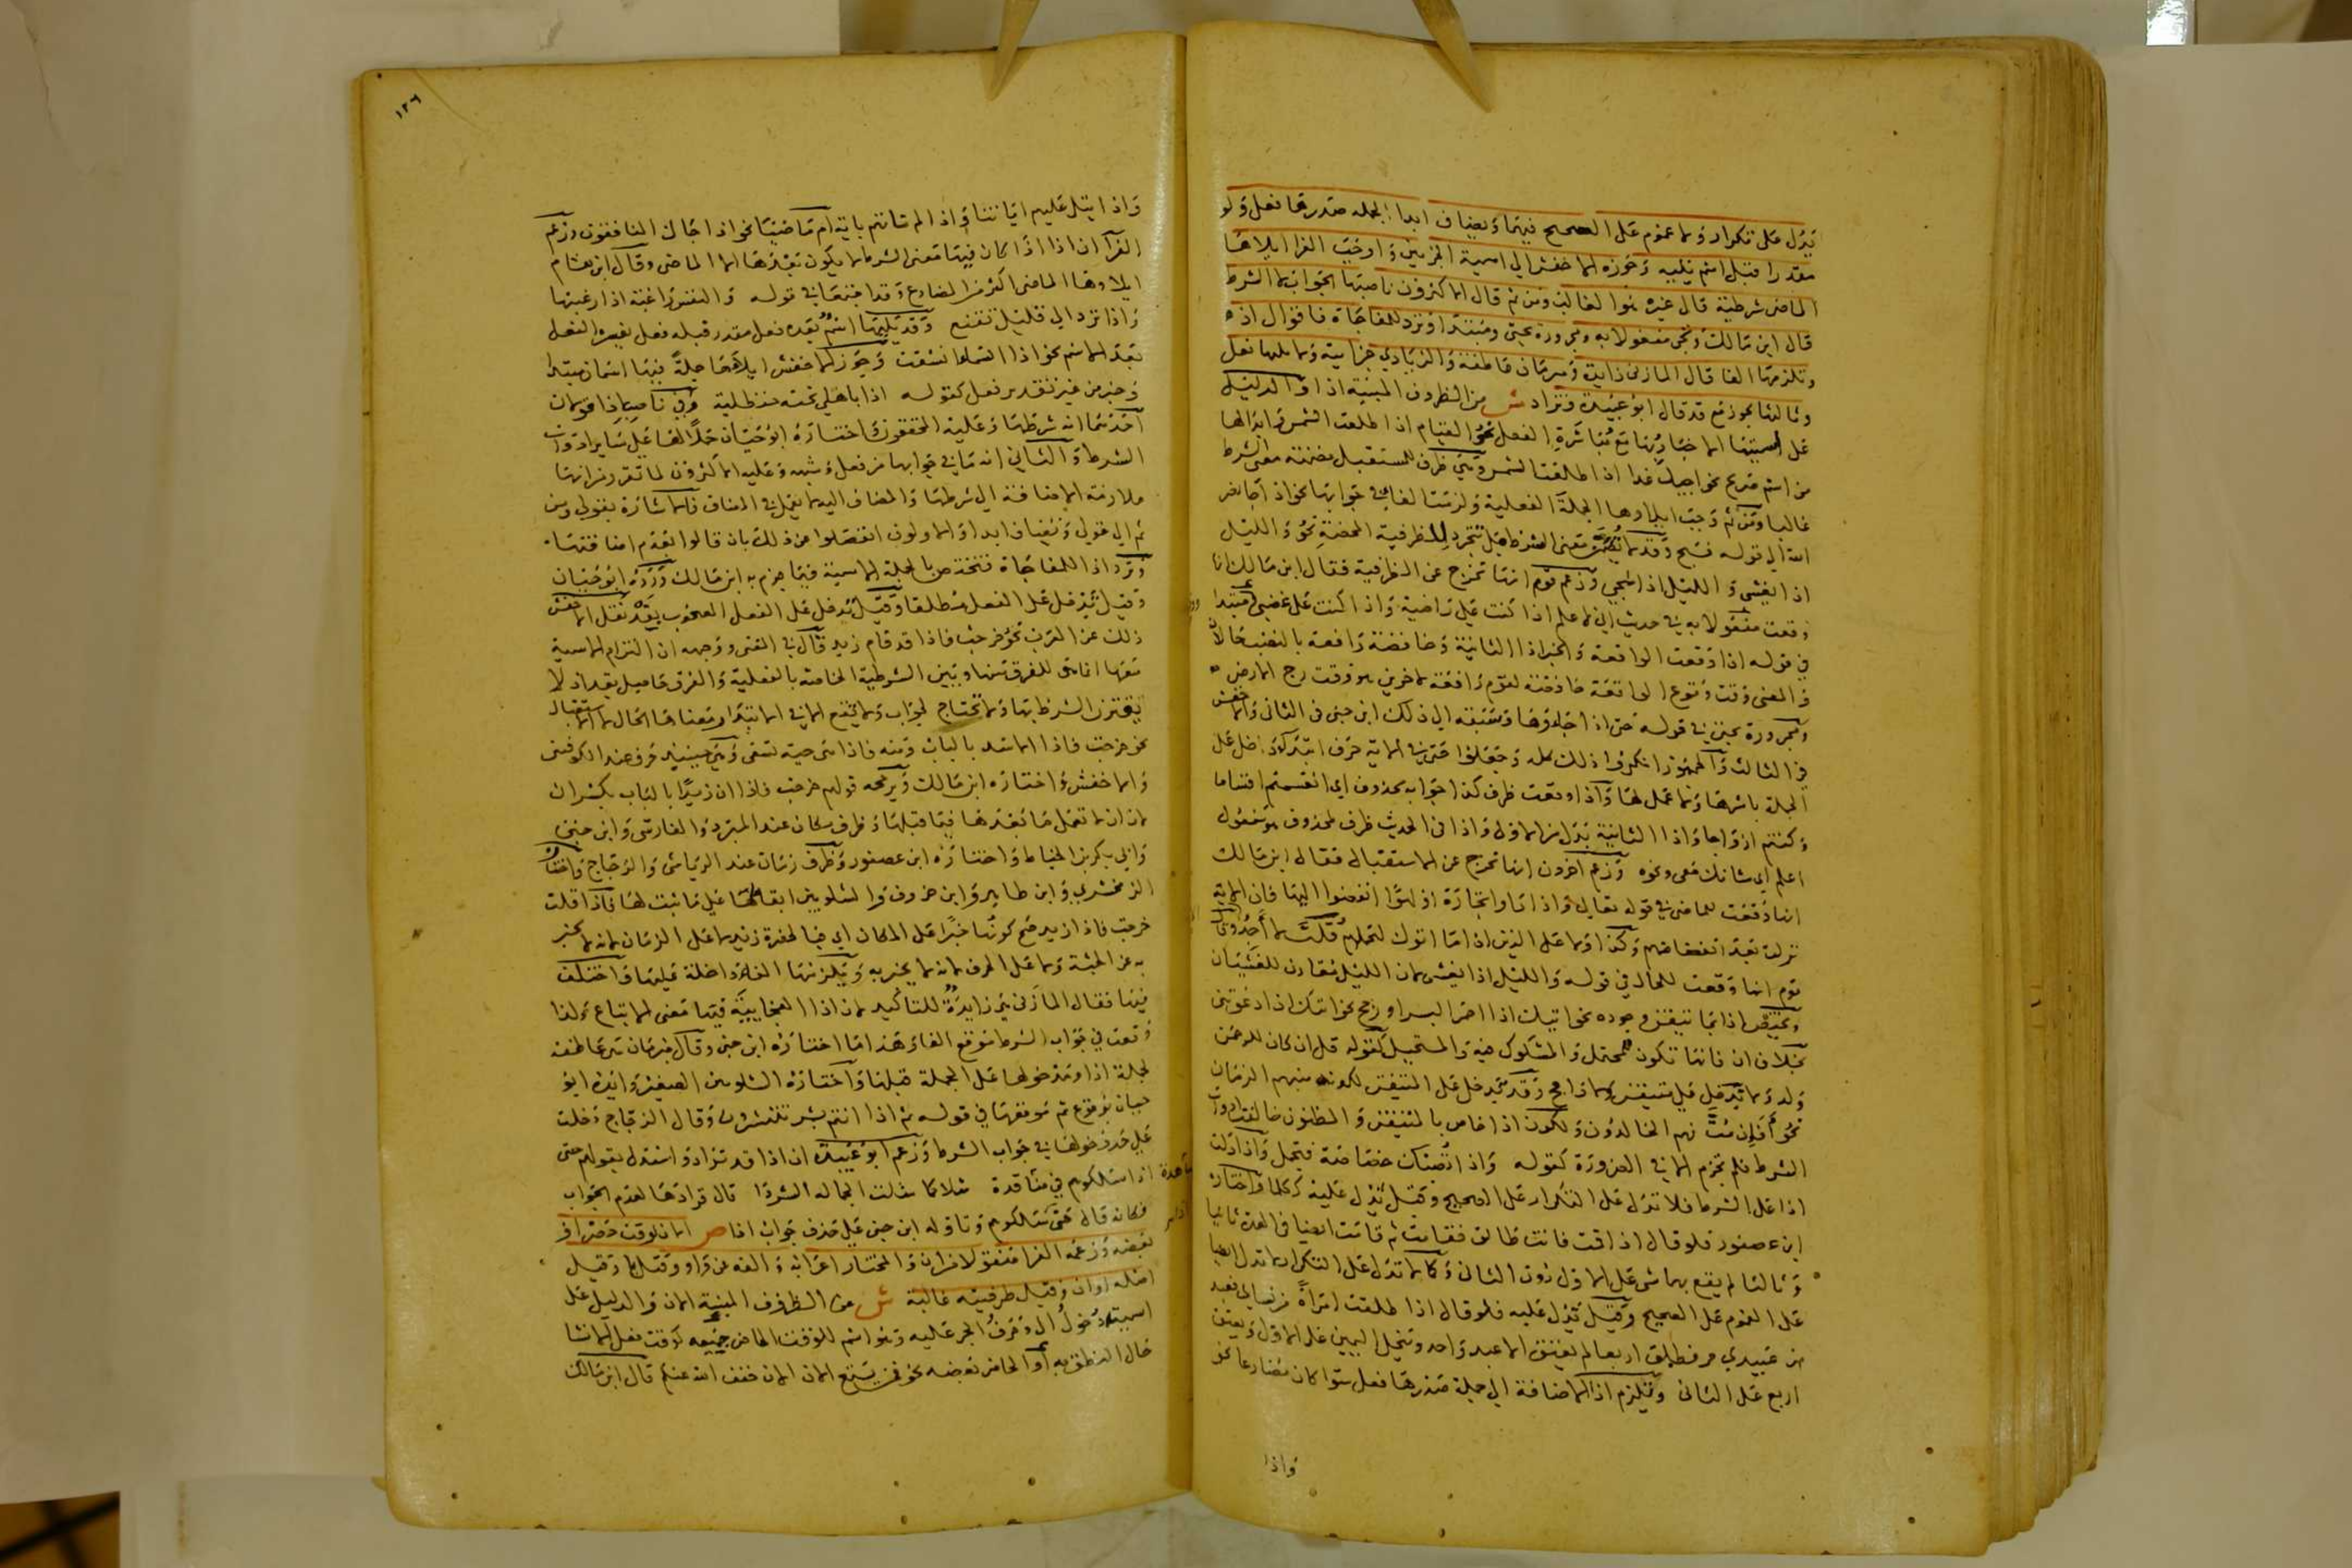 تدل على تكرار ولا عموم على الصحيح فيهما وتضاف ابدا لجملة صدرها فعل ولو
مقدرا قبل اسم يليه وجوزه الاخفش الى اسمية الجزءين واوجب الفرا ايلاها
الماضى شرطية قال غيره هوا الغالب ومن ثم قال الاكثرون ناصبها الجواب لا الشرط
قال ابن مالك وتجى مفعولا به ومجرورة بحتى ومبتدا وترد للمفاجاة فاقوال اذ
وتلزمها الفا قال المازنى زايدة ومبرمان عاطفة والزيادي جزايية ولا يليها فعل
وثالثها يجوز مع قد قال ابو عبيدة وتزاد ش من الظروف المبنية اذا والدليل
على اسميتها الاخبار بها مع مباشرة الفعل نحو القيام اذا طلعت الشمس وابدالها
من اسم صريح نحو اجيك غدا اذا طلعت الشمس وهى ظرف للمستقبل مضمنة معنى الشرط
غالبا ومن ثم وجب ايلاوها الجملة الفعلية ولزمت الفا فى جوابها نحو اذا جا نصر
الله الى قوله فسبح وقد لا تضمن معنى الشرط بل تتجرد للظرفية المحضة نحو والليل
اذا يغشى والليل اذا سجى وزعم قوم انها تخرج عن الظرفية فقال ابن مالك انها
وقعت مفعولا به فى حديث انى لاعلم اذا كنت على راضية واذا كنت على غضبى ومبتدا
في قوله اذا وقعت الواقعة والخبر اذا الثانية وخافضة رافعة بالنصب حالان
والمعنى وقت وقوع الواقعة خافضة لقوم رافعة لاخرين هو وقت رج الارض
ومجرورة بحتى في قوله حتى اذا جاؤها وسبقه الى ذلك ابن جنى فى الثانى والاخفش
فى الثالث والجمهور انكروا ذلك كله وجعلوا حتى فى الاية حرف ابتدا داخل على
الجملة باسرها ولا عمل لها واذا وقعت ظرف كذا جوابه محذوف اي انقسمتم اقساما
وكنتم ازواجا واذا الثانية بدل من الاولى واذا فى الحديث ظرف لمحذوف هو مفعول
اعلم اي شانك معى ونحوه وزعم اخرون انها تخرج عن الاستقبال فقال ابن مالك
انها وقعت للماضى فى قوله تعالى واذا راوا تجارة او لهوا انفضوا اليها فان الاية
نزلت بعد انفضاضهم وكذا ولا على الذين اذا ما اتوك لتحملهم قلت لا اجد وقال
قوم انها وقعت للحال في قوله والليل اذا يغشى لان الليل مقارن للغشيان
وتختص اذا بما تيقن وجوده نحو اتيك اذا احمر البسر او رجح نحو اتيك اذا دعوتنى
بخلاف ان فانها تكون للمحتمل والمشكوك فيه والمستحيل كقوله قل ان كان للرحمن
ولد ولا تدخل على متيقن ولا راجح وقد تدخل على المتيقن لكونه مبهم الزمان
نحو افاين مت فهم الخالدون ولكون اذا خاص بالمتيقن والمظنون خالفت ادوات
الشرط فلم تجزم الا فى الضرورة كقوله واذا تصبك خصاصة فتجمل واذا دلت
اذا على الشرط فلا تدل على التكرار على الصحيح وقيل تدل عليه ككلما واختاره
ابن عصفور فلو قال اذا قمت فانت طالق فقامت ثم قامت ايضا فى العدة ثانيا
وثالثا لم يقع بهما شى على الاول دون الثانى وكما لا تدل على التكرار لا تدل ايضا
على العموم على الصحيح وقيل تدل عليه فلو قال اذا طلقت امراة من نسايى فعبد
من عبيدي حر فطلق اربعا لم يعتق الا عبد واحد وتنحل اليمين على الاول ويعتق
اربع على الثانى وتلزم اذا الاضافة الى جملة صدرها فعل سوا كان مضارعا نحو
واذا
١٢٦
واذا تتلى عليهم اياتنا واذا لم تاتهم باية ام ماضيا نحو اذا جاك المنافقون وزعم
الفرا ان اذا اذا كان فيها معنى الشرط لا يكون بعدها الا الماضى وقال ابن هشام
ايلاوها الماضى اكثر من المضارع وقد اجتمعا في قوله والنفس راغبة اذا رغبتها
واذا ترد الى قليل تقنع وقد يليها اسم بعده فعل مقدر قبله فعل يفسره الفعل
بعد الاسم نحو اذا السما انشقت وجوز الاخفش ايلاها جملة فيها اسمان مبتدا
وخبر من غير تقدير فعل كقوله اذا باهلي تحته حنظلية وفي ناصب اذا قولان
احدهما انه شرطها وعليه المحققون واختاره ابو حيان حملا لها على ساير ادوات
الشرط والثانى انه ما في جوابها من فعل وشبهه وعليه الاكثرون لما تقرر من انها
ملازمة الاضافة الى شرطها والمضاف اليه لا يعمل فى المضاف والاشارة بقولى ومن
ثم الى قولى وتضاف ابدا والاولون انفصلوا عن ذلك بان قالوا بعدم اضافتها
وترد اذا للمفاجاة فتختص بالجملة الاسمية فيما جزم به ابن مالك ورده ابو حيان
وقيل تدخل على الفعل مطلقا وقيل تدخل على الفعل المصحوب بقد نقل الاخفش
ذلك عن العرب نحو خرجت فاذا قد قام زيد قال في المغنى ووجهه ان التزام الاسمية
معها انما هو للفرق بينها وبين الشرطية الخاصة بالفعلية والفرق حاصل بقد اذ لا
يقترن الشرط بها ولا تحتاج لجواب ولا تقع الا فى الابتدا ومعناها الحال لا الاستقبال
نحو خرجت فاذا الاسد بالباب ومنه فاذا هى حية تسعى وهى حينيذ حرف عند الكوفيين
والاخفش واختاره ابن مالك ويرجحه قولهم خرجت فاذا ان زيدا بالباب بكسر ان
لان ان لا تعمل ما بعدها فيما قبلها وظرف مكان عند المبرد والفارسى وابن جنى
وابى بكر بن الخياط واختاره ابن عصفور وظرف زمان عند الرياشى والزجاج واختاره
الزمخشري وابن طاهر وابن خروف والشلوبين ابقا لها على ما ثبت لها فاذا قلت
خرجت فاذا زيد صح كونها خبرا على المكان اي فبالحضرة زيد لا على الزمان لانه لا يخبر
به عن الجثة ولا على الحرف لانه لا يخبر به وتلزمها الفا داخلة عليها واختلف
فيها فقال المازنى هى زايدة للتاكيد لان اذا الفجايية فيها معنى الاتباع ولذا
وقعت في جواب الشرط موقع الفا وهذا ما اختاره ابن جنى وقال مبرمان هى عاطفة
لجملة اذا ومدخولها على الجملة قبلها واختاره الشلوبين الصغير وايده ابو
حيان بوقوع ثم موقعها فى قوله ثم اذا انتم بشر تنتشرون وقال الزجاج دخلت
على حد دخولها فى جواب الشرط وزعم ابو عبيدة ان اذا قد تزاد واستدل بقولهم حتى
اذا اسلكوهم في قتايدة شلا كما تطرد الجمالة الشردا قال فزادها لعدم الجواب
فكانه قال حتى سلكوهم وتاوله ابن جنى على حذف جواب اذا ص الان لوقت حضر او
بعضه وزعمه الفرا منقولا من ان والمختار اعرابه والفه عن واو وقيل يا وقيل
اصله اوان وقيل ظرفيته غالبة ش من الظروف المبنية الان والدليل على
اسميته دخول ال وحرف الجر عليه وهو اسم للوقت الحاضر جميعه كوقت فعل الانشا
حال النطق به او الحاضر بعضه نحو فمن يستمع الان الان خفف الله عنكم قال ابن مالك